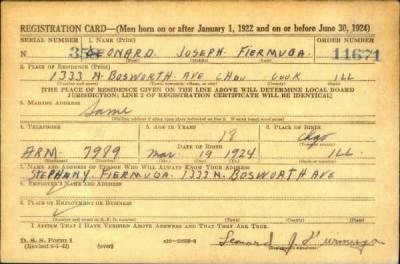 REGISTRATION CARD—(Men born on or after January 1, 1922 and on or before June 30, 1924)
SERIAL NUMBER 1. NAME (Print) ORDER NUMBER
N 35 LEONARD JOSEPH FIERMUGA 11671
(First) (Middle) (Last)
2. PLACE OF RESIDENCE (Print)
1333 N. BOSWORTH AVE CHGO COOK ILL
[THE PLACE OF RESIDENCE GIVEN ON THE LINE ABOVE WILL DETERMINE LOCAL BOARD
JURISDICTION; LINE 2 OF REGISTRATION CERTIFICATE WILL BE IDENTICAL]
3. MAILING ADDRESS
Same
[Mailing address if other than place indicated on line 2. If same insert word same]
4. TELEPHONE 5. AGE IN YEARS 6. PLACE OF BIRTH
18 Chgo
DATE OF BIRTH
ARM. 7989 Mar 19 1924 ILL.
7. NAME AND ADDRESS OF PERSON WHO WILL ALWAYS KNOW YOUR ADDRESS
STEPHANY FIERMUGA 1333 N. BOSWORTH AVE
8. EMPLOYER'S NAME AND ADDRESS
9. PLACE OF EMPLOYMENT OR BUSINESS
I AFFIRM THAT I HAVE VERIFIED ABOVE ANSWERS AND THAT THEY ARE TRUE.
D. S. S. Form 1
(Revised 6-1-42) (over) Leonard J. Fiermuga